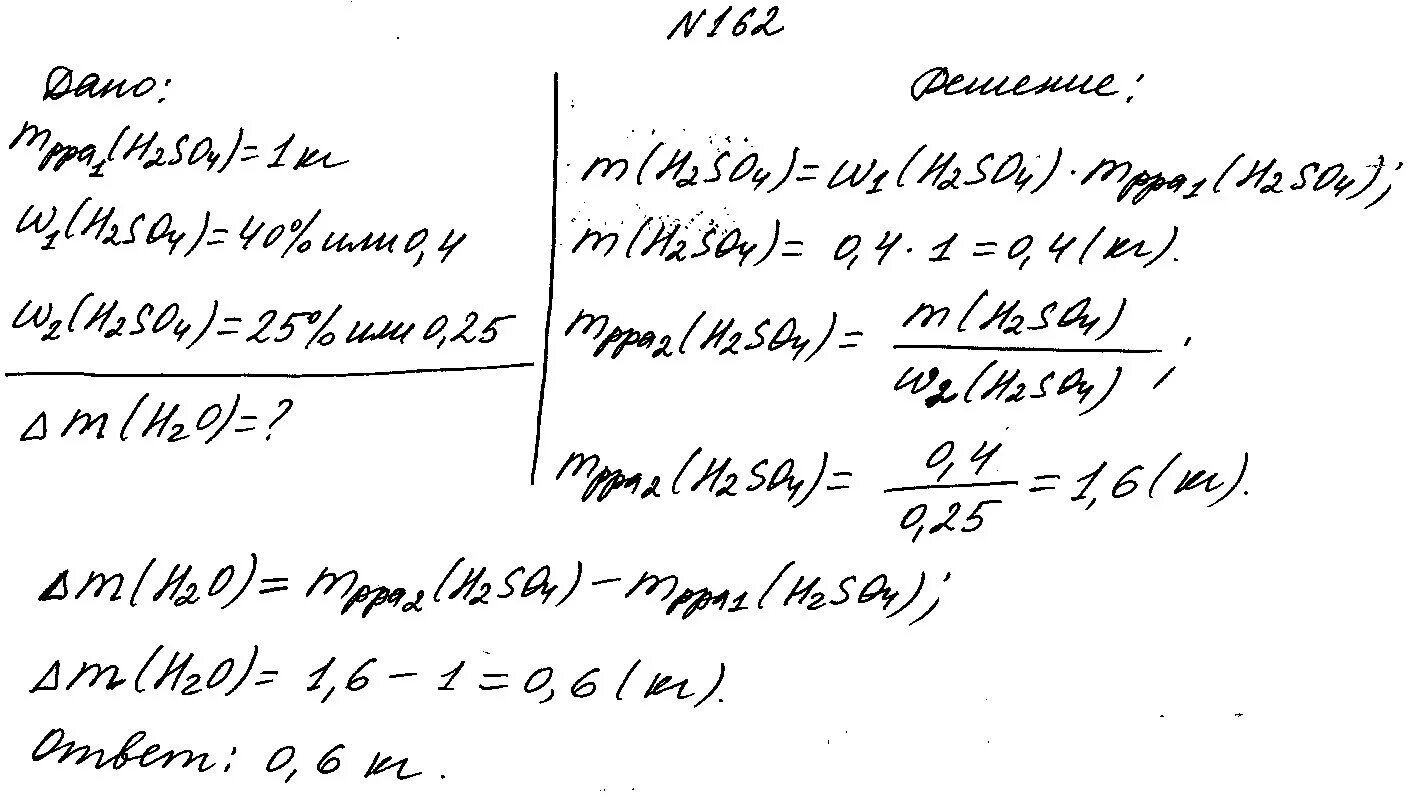 N162
Дано:
mрра1(H2SO4)=1кг
w1(H2SO4)=40% или 0,4
w2(H2SO4)=25% или 0,25
Δm(H2O)=?
Решение:
m(H2SO4)=w1(H2SO4)·mрра1(H2SO4);
m(H2SO4)= 0,4·1=0,4(кг).
mрра2(H2SO4)= m(H2SO4) / w2(H2SO4);
mрра2(H2SO4)= 0,4 / 0,25 =1,6(кг).
Δm(H2O)=mрра2(H2SO4)-mрра1(H2SO4);
Δm(H2O)= 1,6-1=0,6(кг).
Ответ: 0,6 кг.